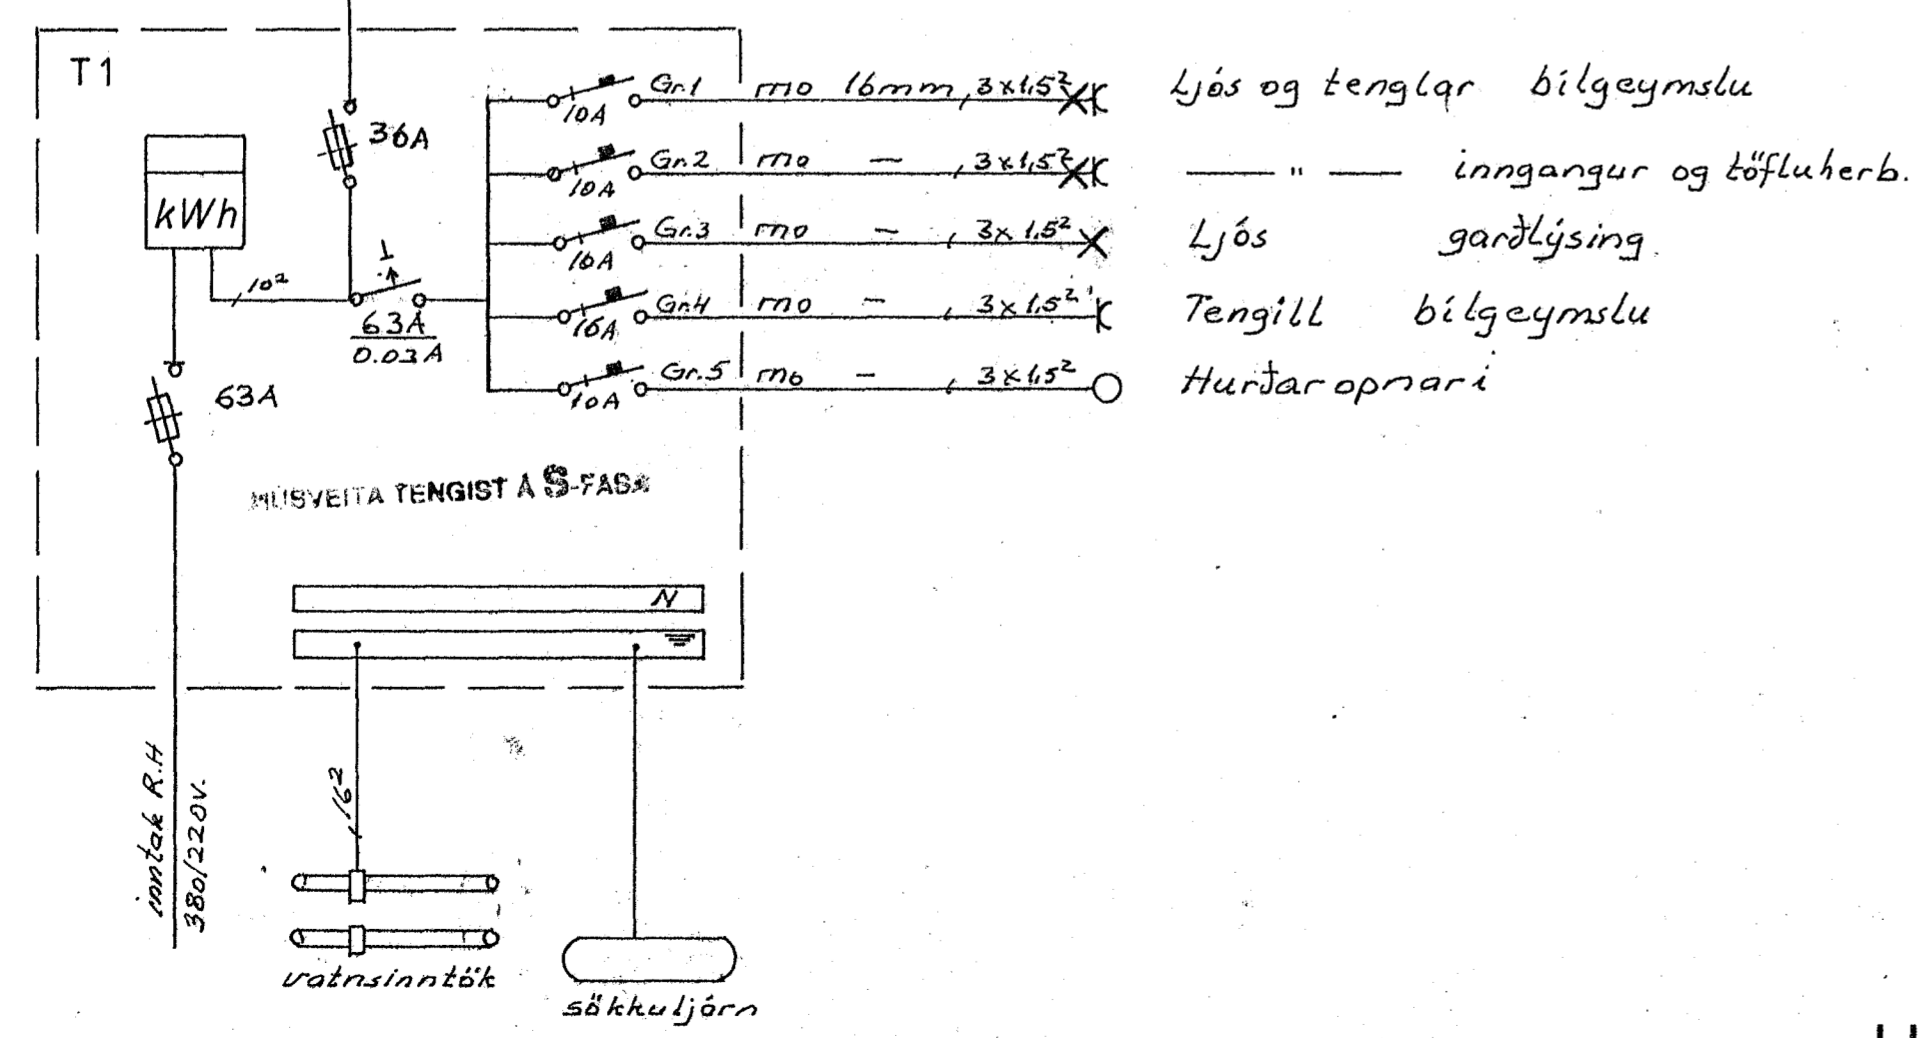 T1
36A
kWh
10²
63A
0.03A
63A
10A Gr.1 mo 16mm, 3x1,5² Ljós og tenglar bílgeymslu
10A Gr.2 mo — , 3x1,5² —— " —— inngangur og töfluherb.
10A Gr.3 mo — , 3x1,5² Ljós garðlýsing
16A Gr.4 mo — , 3x1,5² Tengill bílgeymslu
10A Gr.5 mo — , 3x1,5² Hurðaropnari
HÚSVEITA TENGIST Á S-FASA
N
inntak R.H
380/220V.
16²
vatnsinntök
sökkuljárn